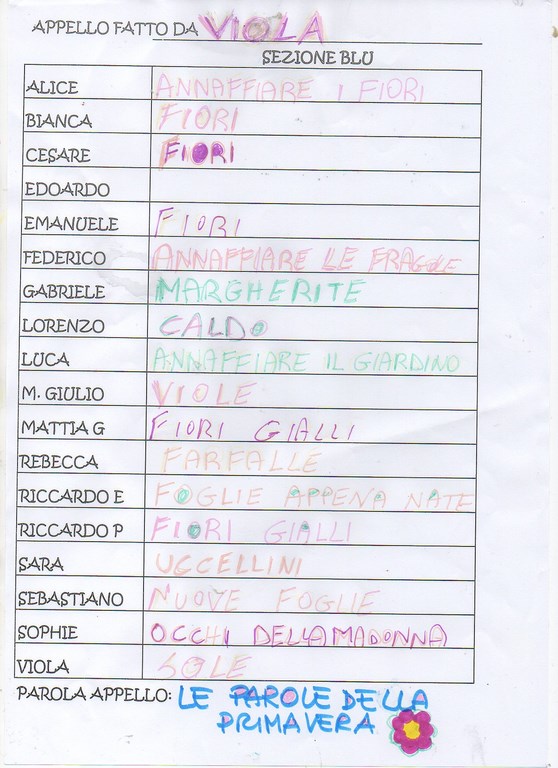 APPELLO FATTO DA VIOLA
SEZIONE BLU
ALICE ANNAFFIARE I FIORI
BIANCA FIORI
CESARE FIORI
EDOARDO
EMANUELE FIORI
FEDERICO ANNAFFIARE LE FRAGOLE
GABRIELE MARGHERITE
LORENZO CALDO
LUCA ANNAFFIARE IL GIARDINO
M. GIULIO VIOLE
MATTIA G FIORI GIALLI
REBECCA FARFALLE
RICCARDO E FOGLIE APPENA NATE
RICCARDO P FIORI GIALLI
SARA UCCELLINI
SEBASTIANO NUOVE FOGLIE
SOPHIE OCCHI DELLA MADONNA
VIOLA SOLE
PAROLA APPELLO: LE PAROLE DELLA
PRIMAVERA